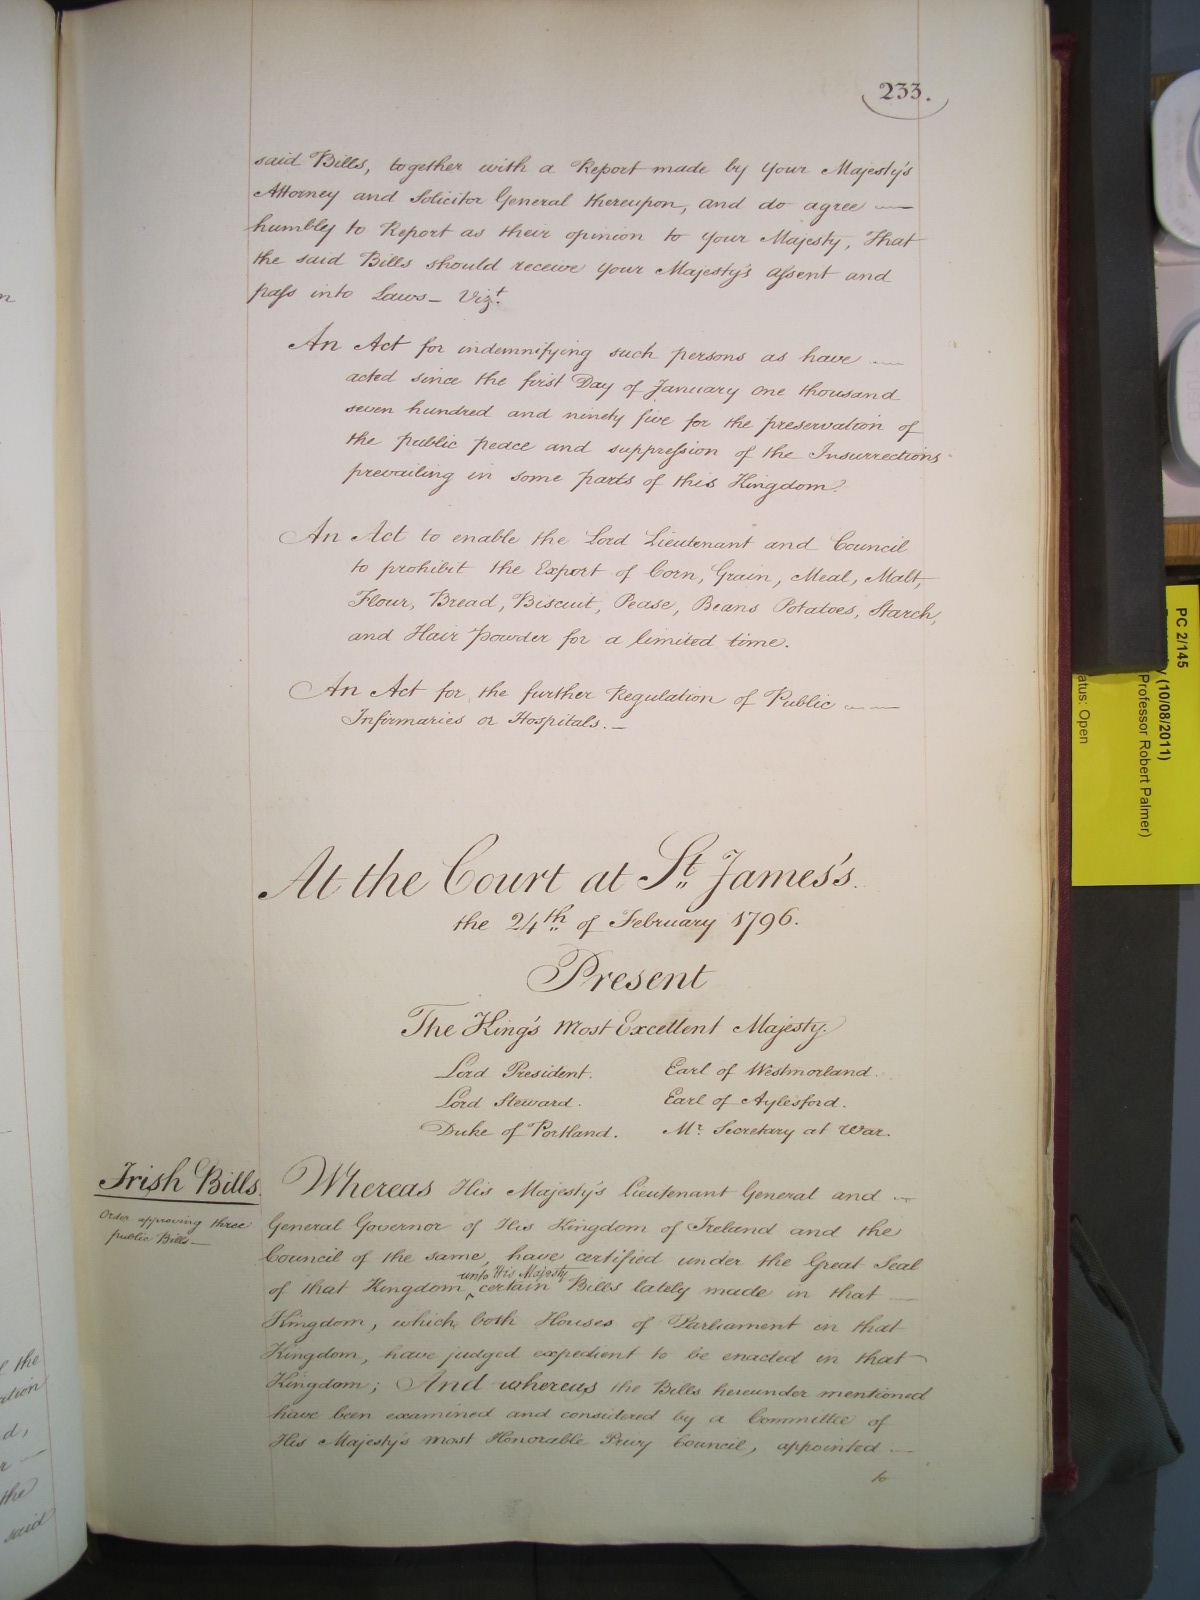 233.
said Bills, together with a Report made by Your Majesty's
Attorney and Solicitor General thereupon, and do agree —
humbly to Report as their opinion to Your Majesty, That
the said Bills should receive Your Majesty's assent and
pass into Laws — Vizt.
An Act for indemnifying such persons as have —
acted since the first Day of January one thousand
seven hundred and ninety five for the preservation of
the public peace and suppression of the Insurrections
prevailing in some parts of this Kingdom.
An Act to enable the Lord Lieutenant and Council
to prohibit the Export of Corn, Grain, Meal, Malt,
Flour, Bread, Biscuit, Pease, Beans Potatoes, Starch,
and Hair Powder for a limited time.
An Act for the further Regulation of Public —
Infirmaries or Hospitals. —
At the Court at St. James's.
the 24th of February 1796.
Present
The King's Most Excellent Majesty.
Lord President. Earl of Westmorland.
Lord Steward. Earl of Aylesford.
Duke of Portland. Mr. Secretary at War.
Irish Bills.
Order approving three
public Bills —
Whereas His Majesty's Lieutenant General and —
General Governor of His Kingdom of Ireland and the
Council of the same, have certified under the Great Seal
unto His Majesty
of that Kingdom ^ certain Bills lately made in that —
Kingdom, which both Houses of Parliament in that
Kingdom, have judged expedient to be enacted in that
Kingdom; And whereas the Bills hereunder mentioned
have been examined and considered by a Committee of
His Majesty's most Honorable Privy Council, appointed —
to
the
d,
the
said
PC 2/145
(10/08/2011)
Professor Robert Palmer)
atus: Open